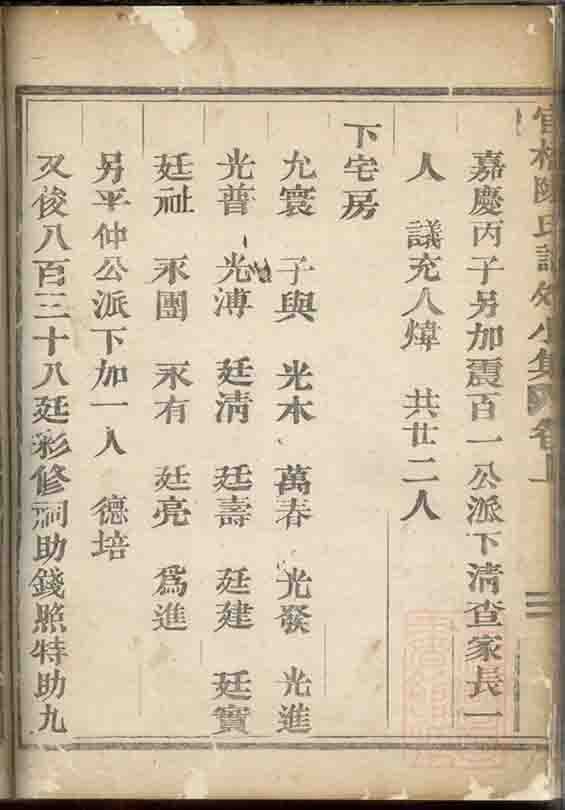 官橋陳氏認外小集 卷上
嘉慶丙子另加震百一公派下清查家長一
人 議充人煒 共廿二人
下宅房
允寰 子與 光本 萬春 光發 光進
光普 光溥 廷清 廷壽 廷建 廷寶
廷祉 永團 永有 廷亮 為進
另平仲公派下加一人 德培
又俊八百三十八廷彩修祠助錢照特助九